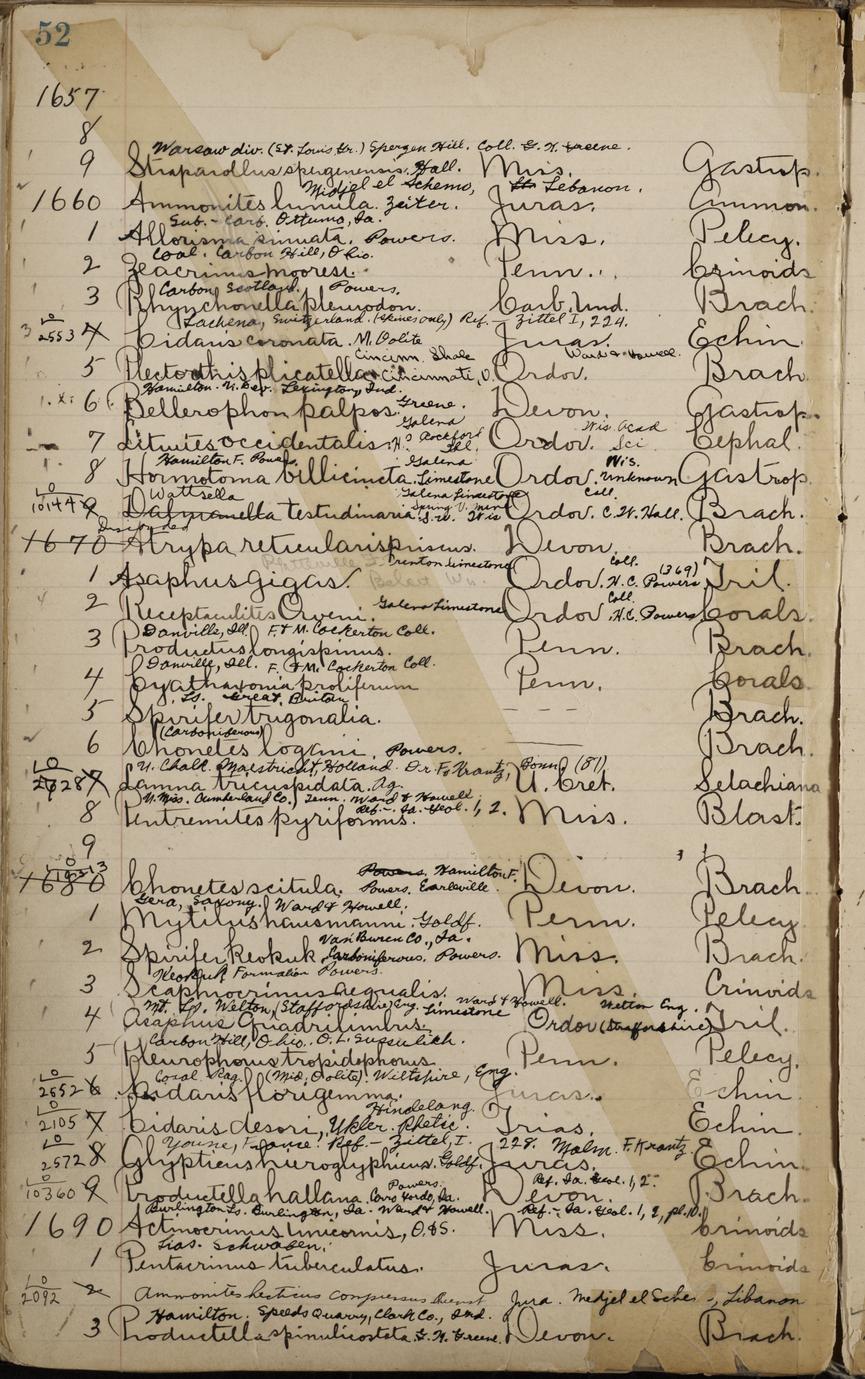 52
1657
8
Warsaw div. (St. Louis Gr.) Spergen Hill. Coll. G. K. Greene.
9 Straparollus spergenensis. Hall. Miss. Gastrop.
Midjel el Schems, Lebanon.
1660 Ammonites lunula. Zeiter. Juras. Ammon.
Sub.-Carb. Ottumo, Ia.
1 Allorisma sinuata. Powers. Miss. Pelecy.
Coal. Carbon Hill, Ohio.
2 Zeacrinus mooresi. Penn. Crinoids
Carbon. Scotland. Powers.
3 Rhynchonella pleurodon. Carb. Und. Brach.
Lachena, Switzerland. (Spines only) Ref.- Zittel I, 224.
2553 4 Cidaris coronata. M. Oolite Juras. Echin.
Cincinn. Shale Ward & Howell.
5 Plectorthis plicatella Cincinnati, O. Ordov. Brach.
Hamilton. U. Dev. Lexington, Ind.
6 Bellerophon palpos. Greene. Devon. Gastrop.
Galena Wis. Acad
7 Lituites occidentalis. Rockford Ill. Ordov. Sci Cephal.
Hamilton F. Powers. Galena Wis.
8 Hormotoma bellicincta. Limestone Ordov. Unknown Gastrop.
Wattsella Galena Limestone Coll.
10144 9 Dalmanella testudinaria. S.W. Wis Ordov. C. W. Hall. Brach.
Designated
1670 Atrypa reticularis priscus. Devon. Brach.
Trenton Limestone Coll. (369)
1 Asaphus Gigas. Ordov. H.C. Powers Tril.
Galena Limestone Coll.
2 Receptaculites Oweni. Ordov. H.C. Powers Corals.
Danville, Ill. F. & M. Cockerton Coll.
3 Productus longispinus. Penn. Brach.
Danville, Ill. F. & M. Cockerton Coll.
4 Cyathaxonia proliferum Penn. Corals.
Ls. Great Britain
5 Spirifer trigonalia. Brach.
(Carboniferous)
6 Chonetes logani. Powers. Brach.
U. Chalk. Maestricht, Holland. Dr. F. Krantz, Bonn (81)
7 Lamna tricuspidata. Ag. U. Cret. Selachiana
U. Miss. Cumberland Co., Tenn. Ward & Howell
Ref.- Ia. Geol. 1, 2.
8 Pentremites pyriformis. Miss. Blast.
9
Powers. Hamilton F.
1680 Chonetes scitula. Powers. Earlville. Devon. Brach.
Gera, Saxony. Ward & Howell.
1 Mytilus hausmanni. Goldf. Perm. Pelecy.
Van Buren Co., Ia.
2 Spirifer Keokuk. Carboniferous. Powers. Miss. Brach.
Keokuk Formation Powers.
3 Scaphiocrinus aequalis. Miss. Crinoids
Mt. Ls. Welton, Staffordshire, Eng. Limestone Ward & Howell. Welton Eng.
4 Asaphus Quadrilimbus. Ordov (Staffordshire) Tril.
Carbon Hill, Ohio.
5 Pleurophorus tropidophorus. Penn. Pelecy.
Coral Rag. (Mid. Oolite). Wiltshire, Eng.
2552 6 Cidaris florigemma. Juras. Echin
Hindelang
2105 7 Cidaris desori, Ukler. Rhetic. Trias. Echin.
Youne, France. Ref.- Zittel, I. 228. Malm. F. Krantz
2572 8 Glypticus hieroglyphicus. Goldf. Juras. Echin.
Powers. Ref. Ia. Geol. 1, 2.
10360 9 Productella hallana. Cerro Gordo, Ia. Devon. Brach.
Burlington Ls. Burlington, Ia. Ward & Howell. Ref.- Ia. Geol. 1, 2, pl.
1690 Actinocrinus Unicornis, O. & S. Miss. Crinoids
Lias. Schwaben.
1 Pentacrinus tuberculatus. Juras. Crinoids
2092 2 Ammonites hecticus compressus Quenst Jura. Medjel el Sche , Libanon
Hamilton. Speeds Quarry, Clark Co., Ind.
3 Productella spinulicostata. G. K. Greene. Devon. Brach.